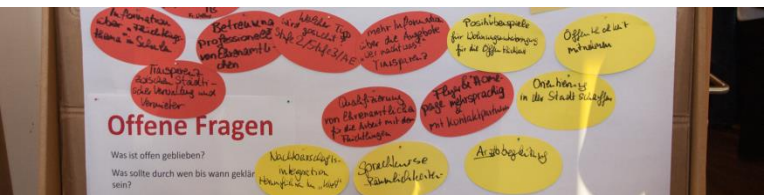 Information
über Flüchtlings-
thema in Schulen
Betreuung
professionelle
von Ehrenamtli-
chen
Welcher Typ
wird gesucht?
mehr Information
über die Angebote
Transparenz
Positivbeispiele
für Wohnungsunterbringung
für die Öffentlichkeit
Öffentlichkeit
mitnehmen
Transparenz
zwischen Stadtti-
scher Verwaltung und
Vermieter
Qualifizierung
von Ehrenamtlichen
für die Arbeit mit den
Flüchtlingen
Flyer & Home-
page mehrsprachig
&
mit Kontaktpartnern
Orientierung
in der Stadt schaffen
Offene Fragen
Was ist offen geblieben?
Was sollte durch wen bis wann geklär
sein?
Nachbarschafts-
integration
Sprachkurse
Räumlichkeiten
Arztbegleitung